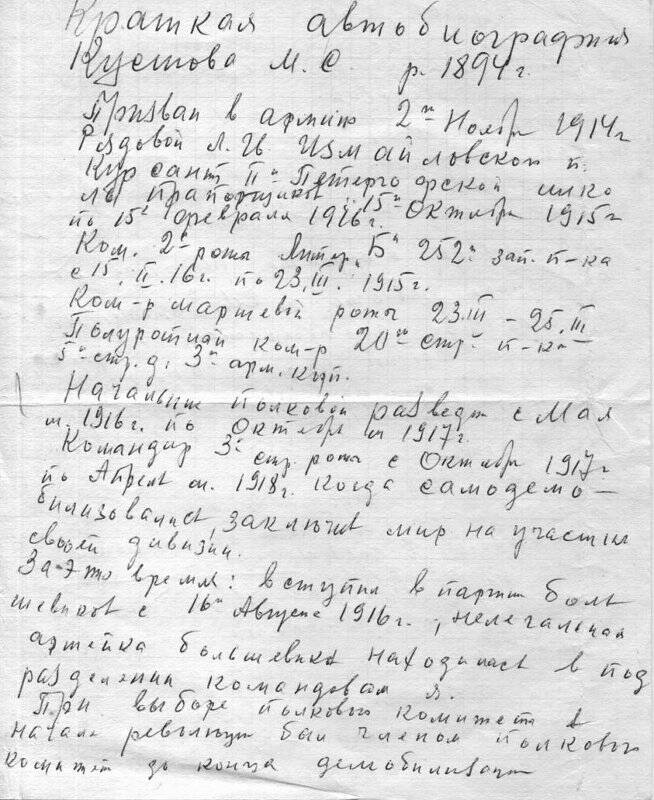 Краткая автобиография
Кустова М. С. р. 1894 г.
Призван в армию 2го Ноября 1914 г
Рядовой Л. Гв. Измайловского п.
Курсант II й Петергофской шко
лы прапорщиков с 15го Октября 1915 г
по 15е Февраля 1916 г.
Ком. 2й роты Литер „Б" 252го зап. п-ка
с 15.II.16 г. по 23.III.1915 г.
Ком-р маршевой роты 23.III – 25.III
Полуротный ком-р 20го стр. п-ка
5й стр. д. 3й арм.
Начальник полковой разведки с Мая
м. 1916 г. по Октябрь м 1917 г.
Командир 3й стр. роты с Октября 1917 г
по Апрель м. 1918 г. когда самодемо-
билизовались, заключив мир на участке
своей дивизии.
За это время: вступил в партию боль
шевиков с 16го Августа 1916 г., нелегальная
ячейка большевиков находилась в под
разделении командовал я.
При выборе полкового комитета в
начале революции был членом полкового
комитета до конца демобилизации